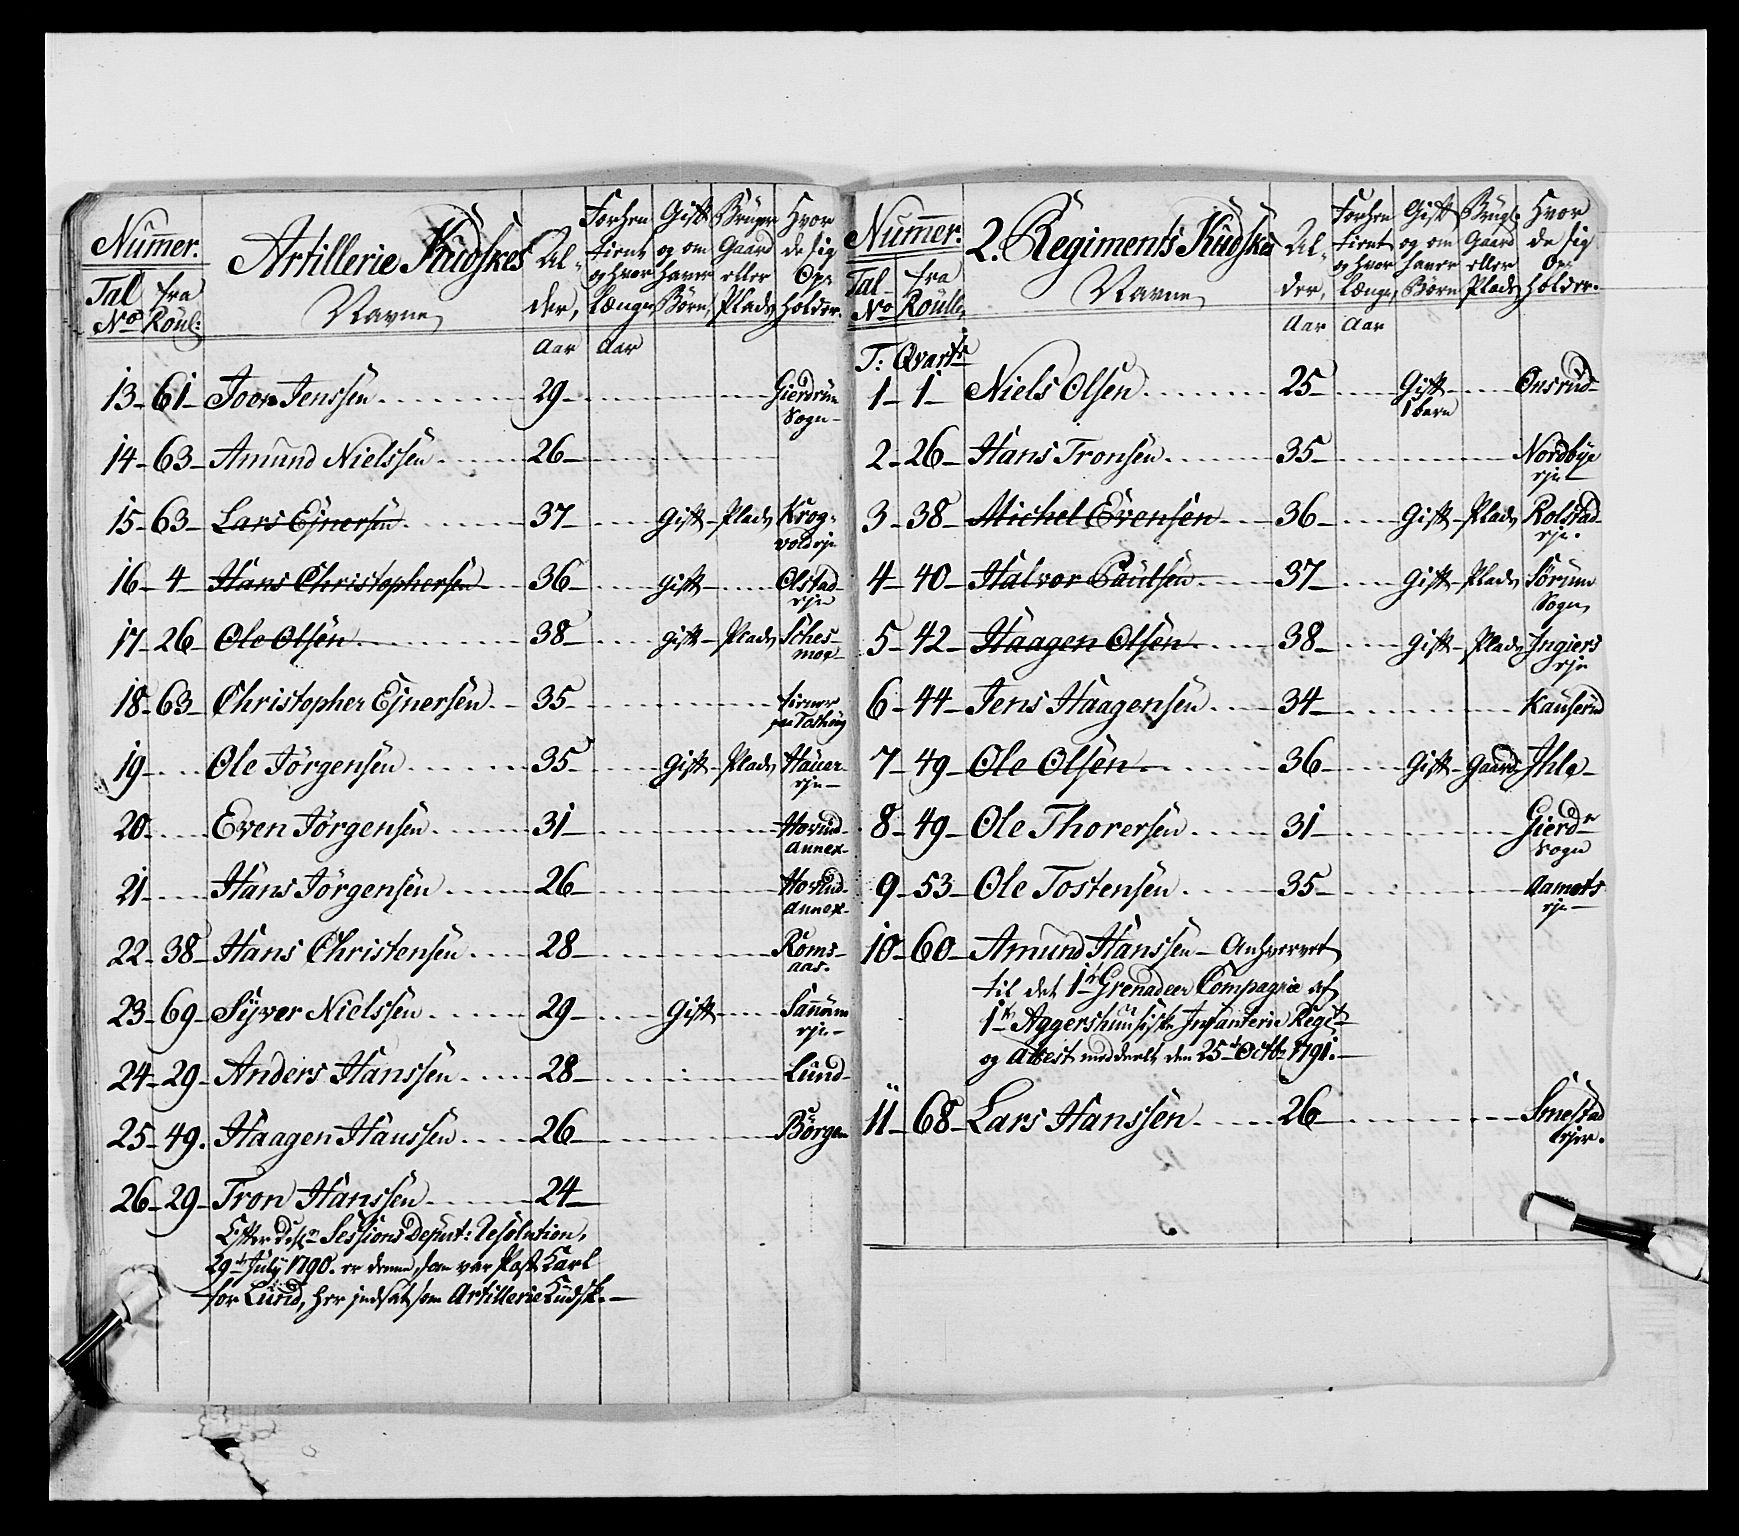 Nummer.
Tal No
fra Roul:
Artillerie Kudskes
Navne,
Alder,
Aar
Forhen
tient
og hvor
længe,
Aar
Gift
og om
haver
Børn,
Bruger
Gaard
eller
Plads,
Hvor
de sig
Op-
holder.
13 - 61 - Joen Jenssen 29 - Gierdrum
Sogn -
14 - 63 - Amund Nielssen 26 -
15 - 63 - Lars Ejnersen 37 - gift - Plads, Krog-
vold eje
16 - 4 - Hans Christophersen 36 - gift - Olstad-
eje
17 - 26 - Ole Olsen 38 - gift - Plads, Schес-
moe -
18 - 63 - Christopher Ejnersen 35 - tiener
paa Tothong
19 - Ole Jørgensen 35 - gift - Plads, Hauer-
eje -
20 - Even Jørgensen 31 - Hovind-
Annex -
21 - Hans Jørgensen 26 - Hovind-
Annex -
22 - 38 - Hans Christensen 28 - Roms-
aas.
23 - 69 - Syver Nielssen 29 - Gift -
eje -
24 - 29 - Anders Hanssen 28 - Lund -
25 - 49. Haagen Hanssen 26 - Børgen
26 - 29 - Tron Hanssen 24 -
Efter Sessions Deput: Resolution,
29de July 1790. er denne, som var Post Karl
for Lund, her indsat som Artillerie Kudsk. -
Nummer.
Tal No
fra Roulle,
2. Regiments Kudskes
Navne,
Alder,
Aar
Forhen
tient
og hvor
længe,
Aar
Gift
og om
haver
Børn
Brugt:
Gaard
eller
Plads,
Hvor
de sig
Op-
holder.
T: Qvartr
1 - 1 - Niels Olsen 25 - Gift
1 barn
Onsrud -
2 - 26 - Hans Tronsen 35 - Nordbye
eje -
3 - 38 - Michel Evensen 36 - Gift - Plads, Rolstad-
eje.
4 - 40 - Halvor Paulsen 37 - Gift - Plads, Sørum
Sogn,
5 - 42 - Haagen Olsen 38 - Gift - Plads, Ingiers
eje
6 - 44 - Jens Haagensen 34 - Kauserud
7 - 49 - Ole Olsen 36 - Gift - Gaard, Ihle -
8 - 49 - Ole Thorersen 31 - Gierdr
Sogn
9 - 53 - Ole Tostensen 35 - Aamots
eje -
10 - 60 - Amund Hanssen - Anhvervet
til det 1te Grenadeer Compagnie af
1te Aggershuusiske Infanterie Regit
og Attest meddeelt den 25de Octbr 1791. -
11 - 68 - Lars Hanssen 26 - Smestad
ejer.